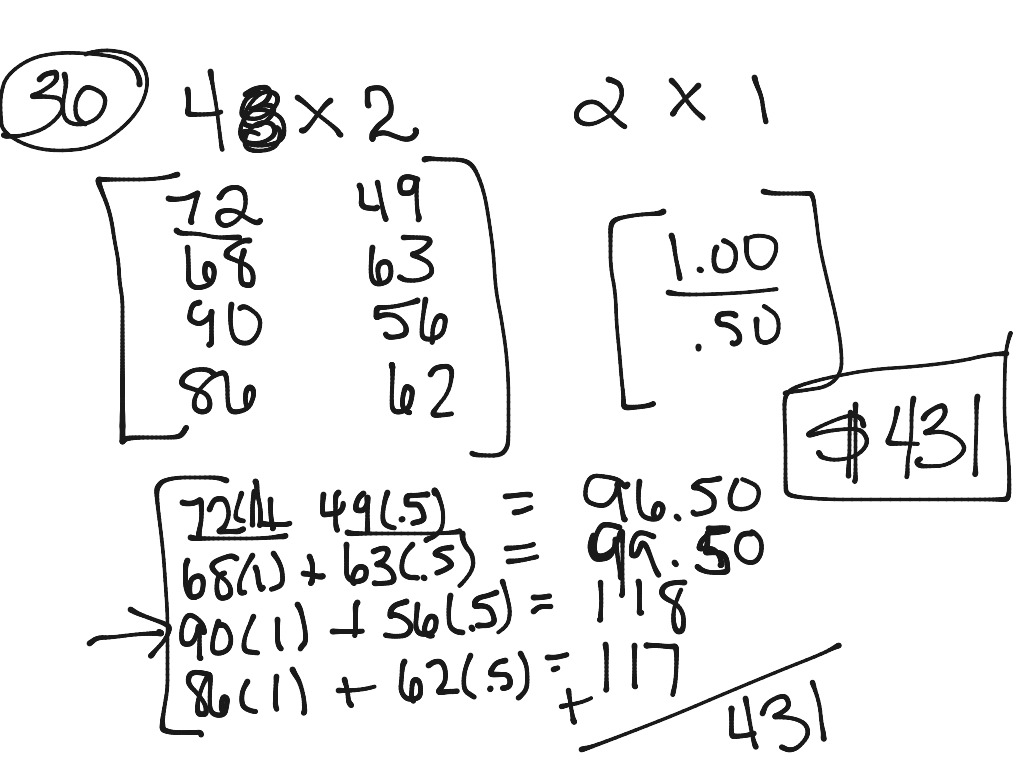 36 4 × 2 2 × 1
72 49
68 63 1.00
90 56 .50
86 62
$431
72(1)+ 49(.5) = 96.50
68(1) + 63(.5) = 99.50
→ 90(1) + 56(.5) = 118
86(1) + 62(.5) = + 117
431